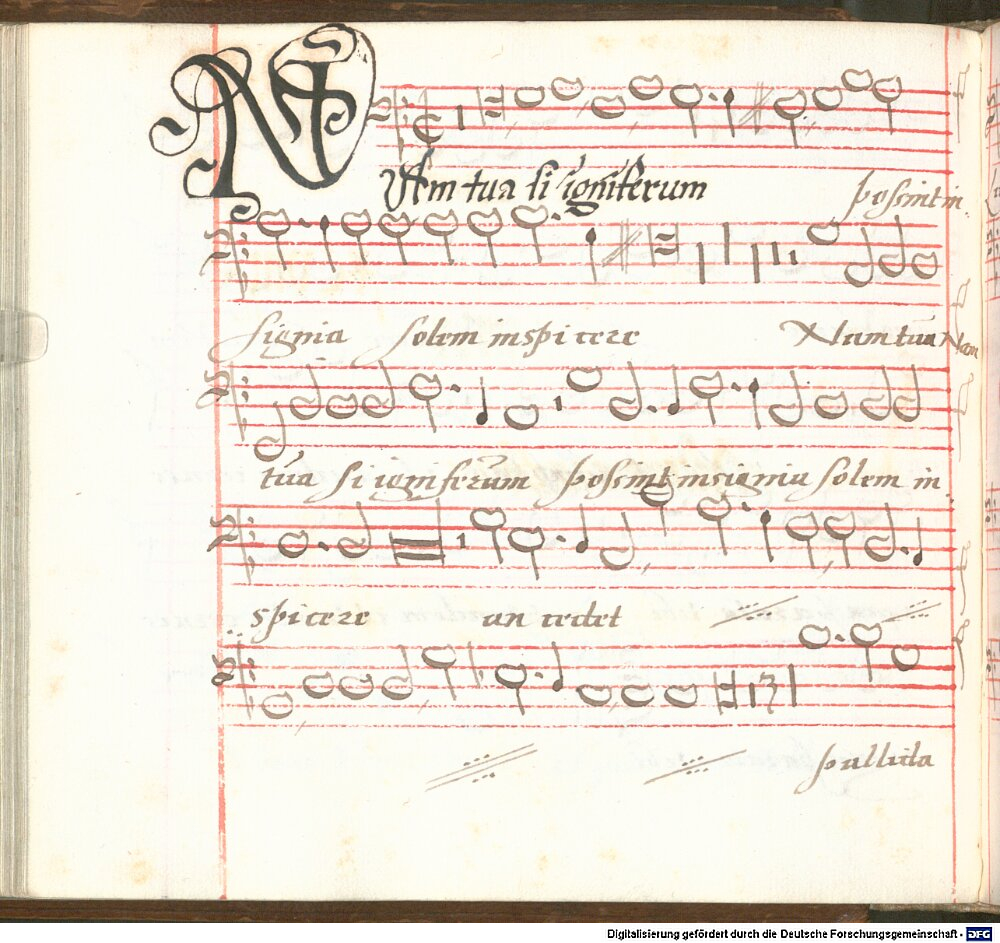 NAm tua si igniferum poscint in
signia solem inspicere Nam tua Nam
tua si igniferum poscint insignia solem in
spicere an cedet
pallida
Digitalisierung gefördert durch die Deutsche Forschungsgemeinschaft - DFG